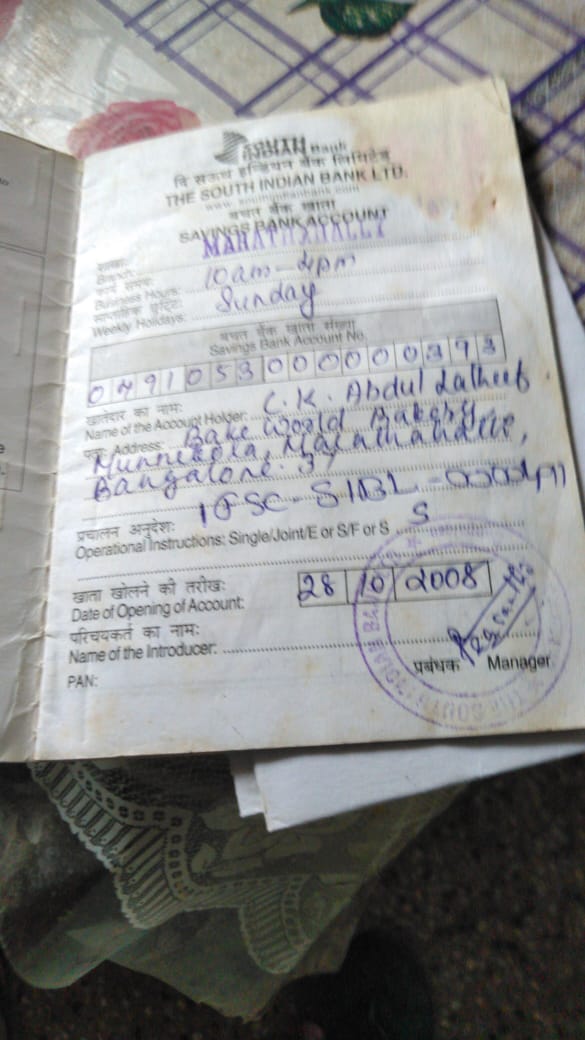 SOUTH
INDIAN Bank
दि साउथ इन्डियन बैंक लिमिटेड
THE SOUTH INDIAN BANK LTD.
www.southindianbank.com
बचत बैंक खाता
SAVINGS BANK ACCOUNT
शाखा:
Branch: MARATHAHALLY
कार्य समय:
Business Hours: 10am - 4pm
साप्ताहिक छुट्टि:
Weekly Holidays: Sunday
बचत बैंक खाता संख्या
Savings Bank Account No.
0491053000000393
खातेदार का नाम:
Name of the Account Holder: C.K. Abdul Latheef
पता: Address: Bake World Bakery,
Munnekola, Marathahalli,
Bangalore. 37
IFSC - SIBL -
प्रचालन अनुदेश:
Operational Instructions: Single/Joint/E or S/F or S S
खाता खोलने की तारीख:
Date of Opening of Account: 28 10 2008
परिचयकर्त का नाम:
Name of the Introducer:
प्रबंधक Manager
PAN: